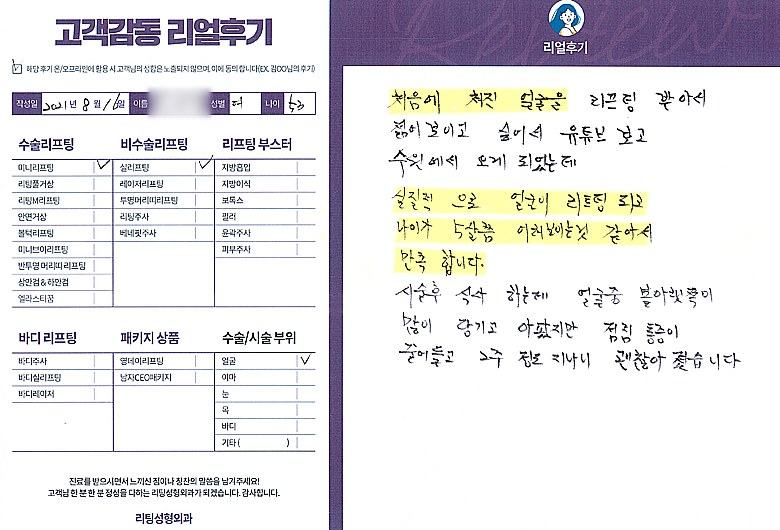 고객감동 리얼후기
해당 후기 온/오프라인에 활용 시 고객님의 성함은 노출되지 않으며, 이에 동의합니다(EX. 김OO님의 후기)
작성일 2021년 8월 16일 이름 성별 여 나이 53
수술리프팅
미니리프팅
리팅풀거상
리팅M리프팅
안면거상
볼턱리프팅
미니브이리프팅
반투명 머리띠 리프팅
상안검 & 하안검
엘라스티꿈
비수술리프팅
실리프팅
레이저리프팅
투명머리띠리프팅
리팅주사
베네핏주사
리프팅 부스터
지방흡입
지방이식
보톡스
필러
윤곽주사
피부주사
바디 리프팅
바디주사
바디실리프팅
바디레이저
패키지 상품
영데이리프팅
남자CEO패키지
수술/시술 부위
얼굴
이마
눈
목
바디
기타 ( )
진료를 받으시면서 느끼신 점이나 칭찬의 말씀을 남겨주세요!
고객님 한 분 한 분 정성을 다하는 리팅성형외과가 되겠습니다. 감사합니다.
리팅성형외과
리얼후기
처음에 처진 얼굴을 리프팅 받아서
젊어보이고 싶어서 유튜브 보고
수원에서 오게 되었는데
실질적으로 얼굴이 리프팅 되고
나이가 5살쯤 어려보이는것 같아서
만족 합니다.
시술후 식사 하는데 얼굴중 볼아랫쪽이
많이 당기고 아팠지만 점점 통증이
줄어들고 2주 정도 지나니 괜찮아 졌습니다